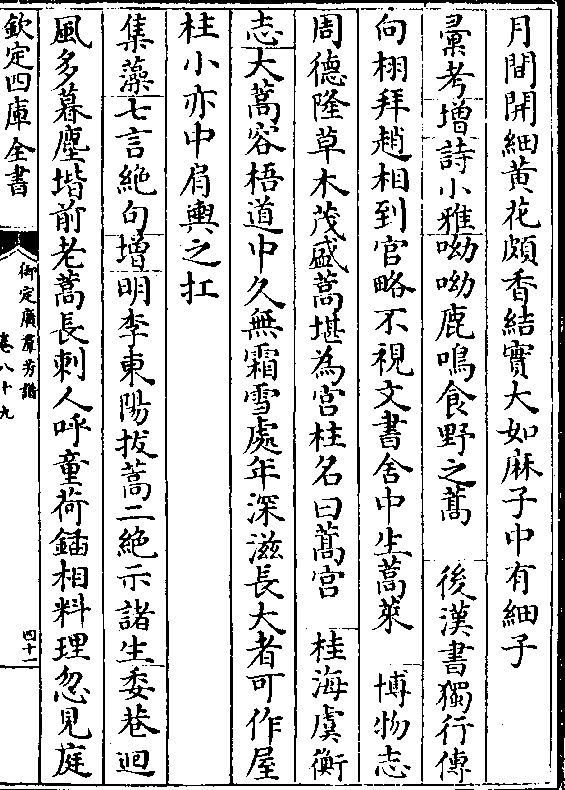 月間開細黃花頗香結實大如麻子中有細子
彚考增詩小雅呦呦鹿鳴食野之蒿　後漢書獨行傳
向栩拜趙相到官略不視文書舍中生蒿萊　博物志
周德隆草木茂盛蒿堪為宫柱名曰蒿宫　桂海虞衡
志大蒿容梧道中久無霜雪處年深滋長大者可作屋
柱小亦中肩輿之扛
集藻七言絶句增明李東陽拔蒿二絶示諸生委巷迴
風多暮塵堦前老蒿長刺人呼童荷鍤相料理忽見庭
欽定四庫全書
御定廣羣芳譜
卷八十九
四十一